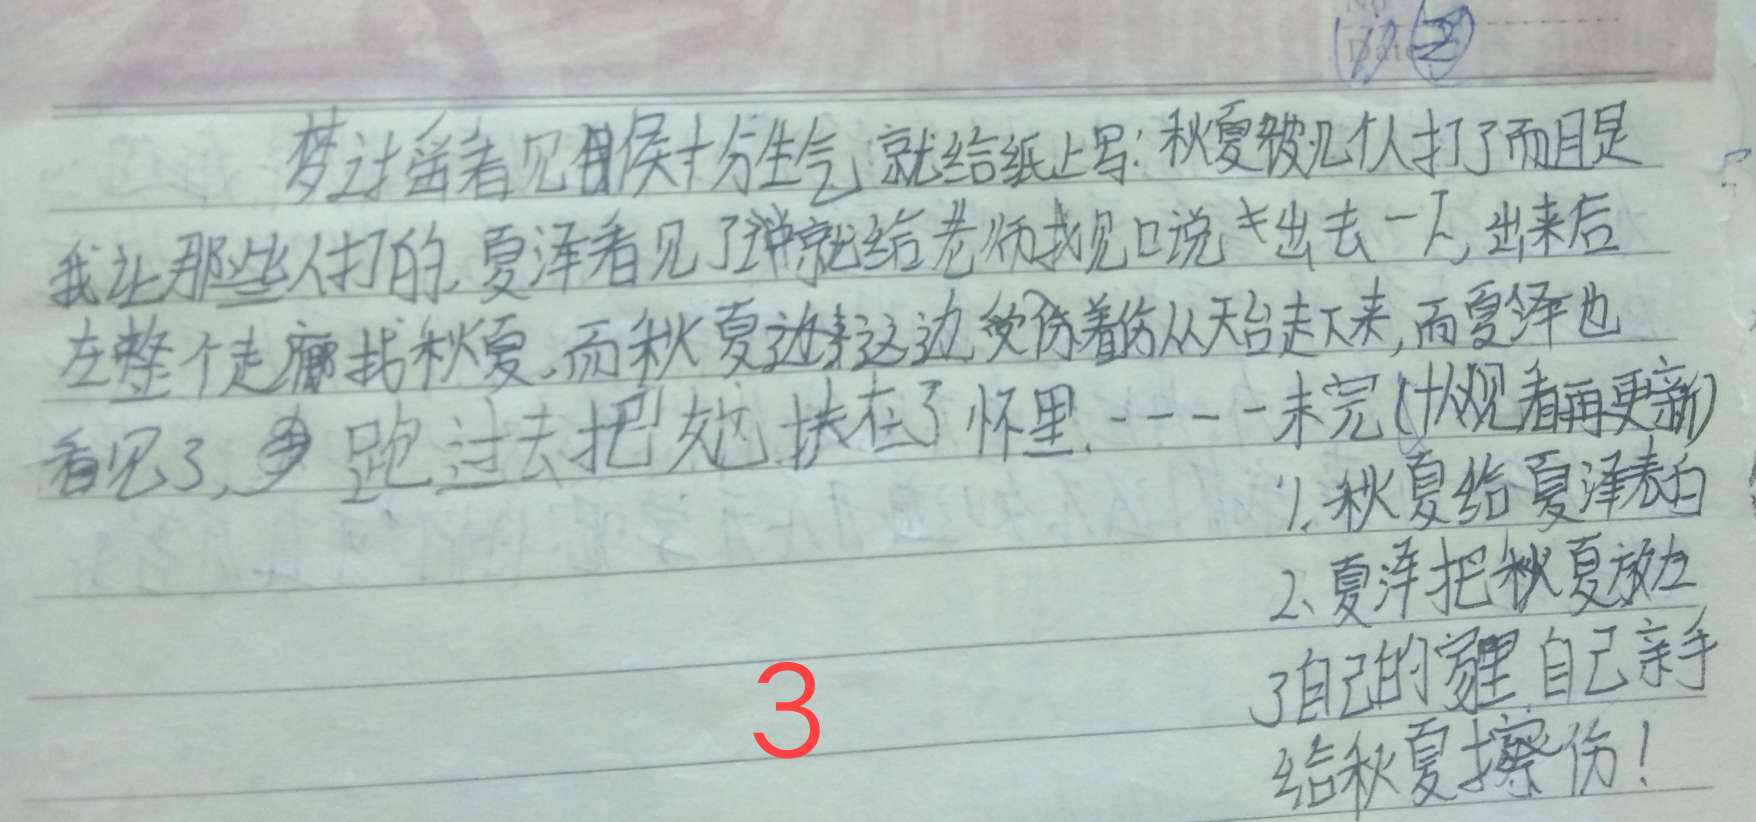 No
Date
梦过瑶看见侯十分生气,就给纸上写:秋夏被几个人打了而且是
我让那些人打的.夏泽看见了就给老师找见口说去出去一下,出来后
在整个走廊找秋夏.而秋夏这边受伤着伤从天台走下来,而夏泽也
看见了,跑过去把她扶在了怀里.----未完(十人观看再更新)
1.秋夏给夏泽表白
2、夏泽把秋夏放在
了自己的家里自己亲手
给秋夏擦伤!
3